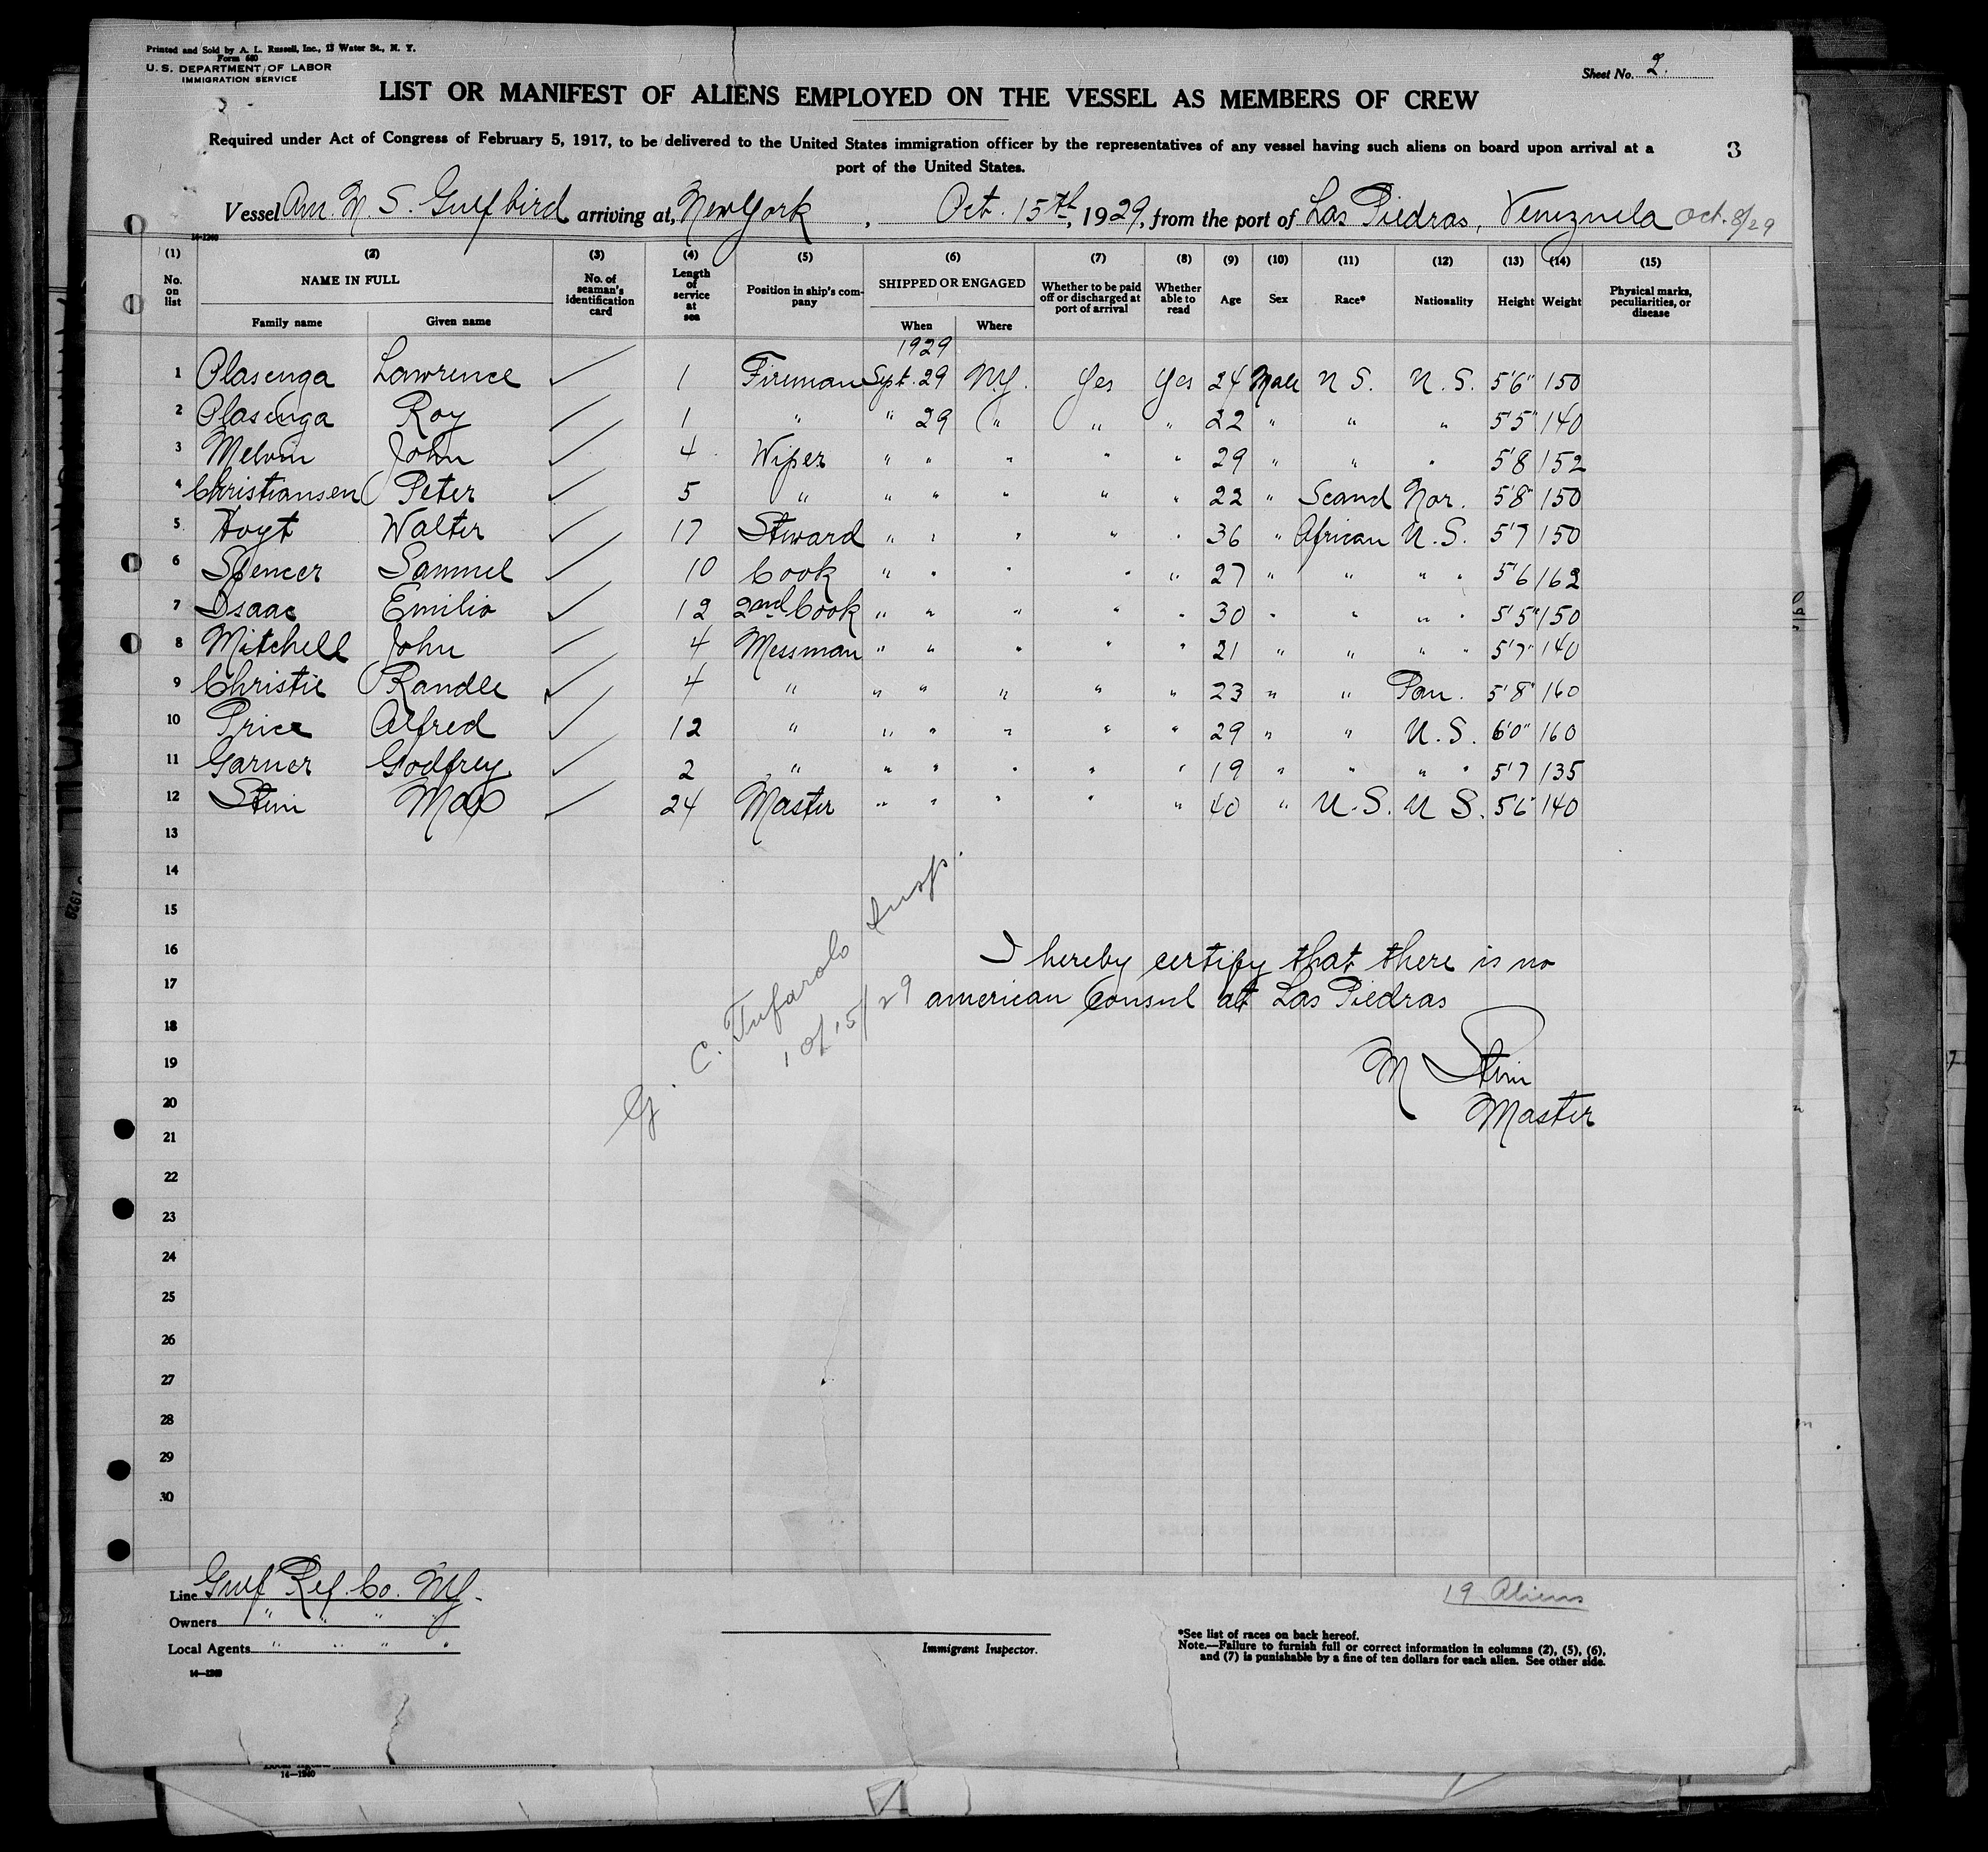 Printed and Sold by A. L. Russell, Inc., 13 Water St., N. Y.
Form 680
U. S. DEPARTMENT OF LABOR
IMMIGRATION SERVICE
Sheet No. 2.
LIST OR MANIFEST OF ALIENS EMPLOYED ON THE VESSEL AS MEMBERS OF CREW
Required under Act of Congress of February 5, 1917, to be delivered to the United States immigration officer by the representatives of any vessel having such aliens on board upon arrival at a
port of the United States.
3
Vessel Am. M. S. Gulfbird arriving at, New York, Oct. 15th, 1929, from the port of Las Piedras, Venezuela Oct. 8/29
14-1240
(1) (2) (3) (4) (5) (6) (7) (8) (9) (10) (11) (12) (13) (14) (15)
No. on list NAME IN FULL No. of seaman's identification card Length of service at sea Position in ship's company SHIPPED OR ENGAGED Whether to be paid off or discharged at port of arrival Whether able to read Age Sex Race* Nationality Height Weight Physical marks, peculiarities, or disease
Family name Given name When Where
1929
1 Olasenga Lawrence ✓ 1 Fireman Sept. 29 NY. Yes Yes 24 Male U S. U. S. 5'6" 150
2 Olasenga Roy ✓ 1 " " 29 " " " 22 " " " 5'5" 140
3 Melvin John ✓ 4 Wiper " " " " " 29 " " " 5'8 152
4 Christiansen Peter ✓ 5 " " " " " " 22 " Scand Nor. 5'8" 150
5 Hoyt Walter ✓ 17 Steward " " " " " 36 " African U. S. 5'7 150
6 Spencer Samuel ✓ 10 Cook " " " " " 27 " " " " 5'6 162
7 Isaac Emilio ✓ 12 2nd Cook " " " " " 30 " " " " 5'5" 150
8 Mitchell John ✓ 4 Messman " " " " " 21 " " " " 5'7" 140
9 Christie Randle ✓ 4 " " " " " " 23 " " Pan. 5'8" 160
10 Price Alfred ✓ 12 " " " " " " 29 " " U. S. 6'0" 160
11 Garner Godfrey ✓ 2 " " " " " " 19 " " " " 5'7 135
12 Stein Max ✓ 24 Master " " " " " 40 " U. S. U S. 5'6" 140
13
14
15
16
17
18
19
20
21
22
23
24
25
26
27
28
29
30
I hereby certify that there is no
american Consul at Las Piedras
M Stein
Master
G. C. Tufarolo Insp.
10/15/29
Line Gulf Ref. Co. NY.
Owners " " " "
Local Agents " " " "
14—1240
Immigrant Inspector.
19 Aliens
*See list of races on back hereof.
Note.—Failure to furnish full or correct information in columns (2), (5), (6),
and (7) is punishable by a fine of ten dollars for each alien. See other side.
14—1240